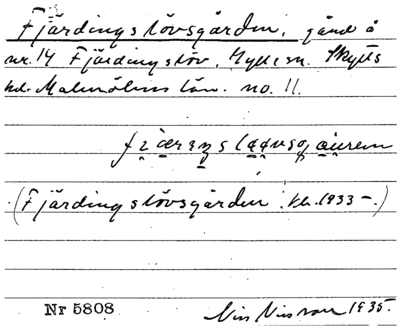 Fjärdingslövsgården, gård å
nr. 14 Fjärdingslöv, Gylle sn. Skytts
hd. Malmöhus län. no. 11.
(Fjärdingslövsgården Kb. 1933–.)
Nr 5808 Nils Nilsson 1935.